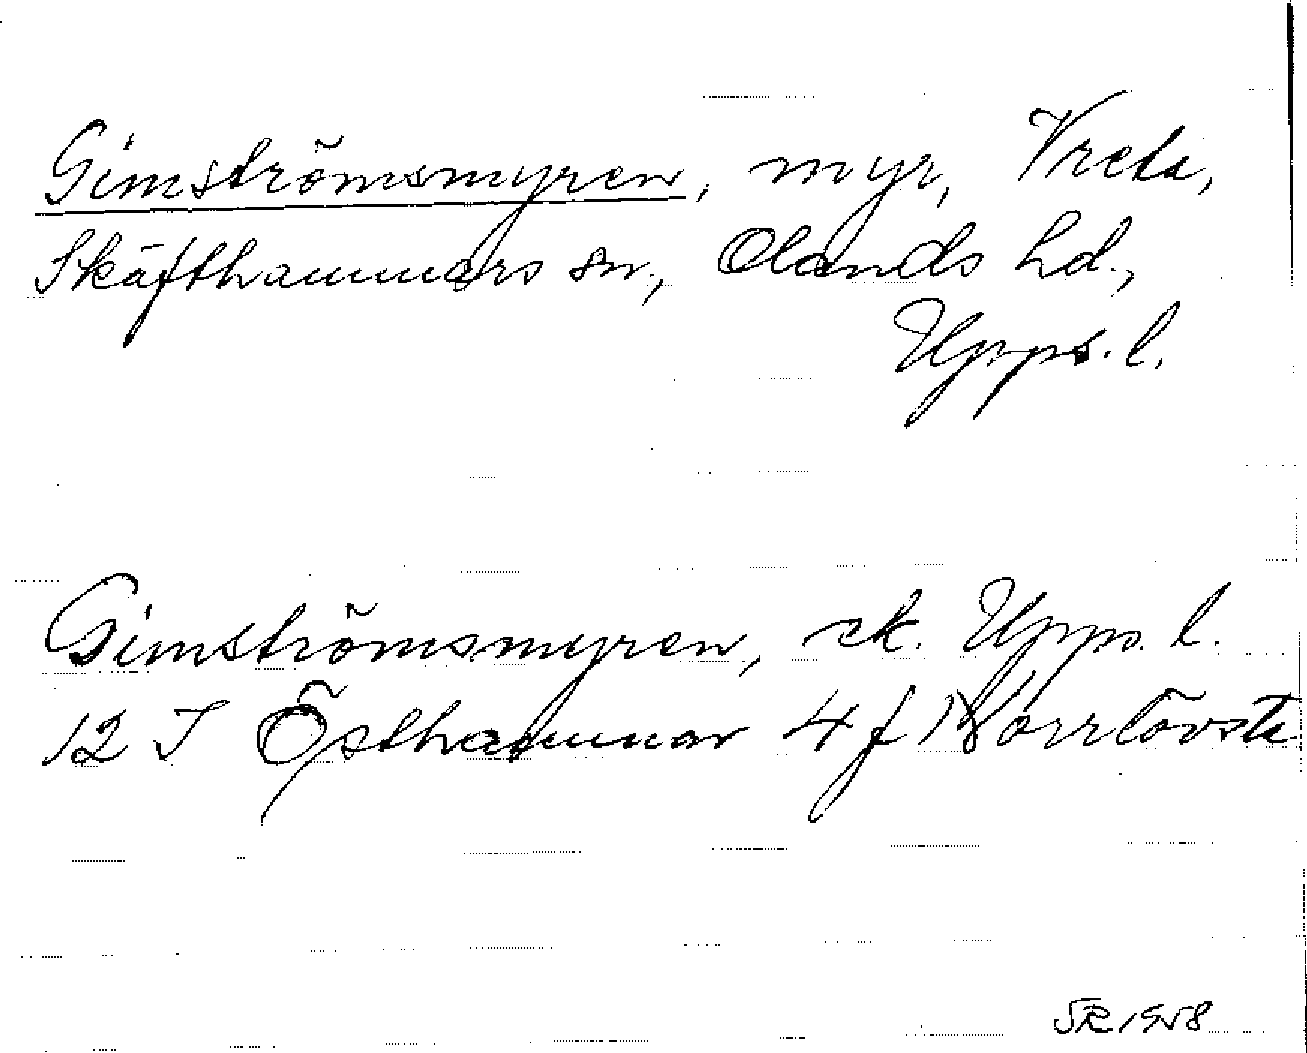 Gimströmsmyren, myr, Vreta,
Skäfthammars sn., Olands hd.,
Upps. l.
Gimströmsmyren, ek. Upps. l.
12 I Östhammar 4 f Norrlövsta
SR 1958